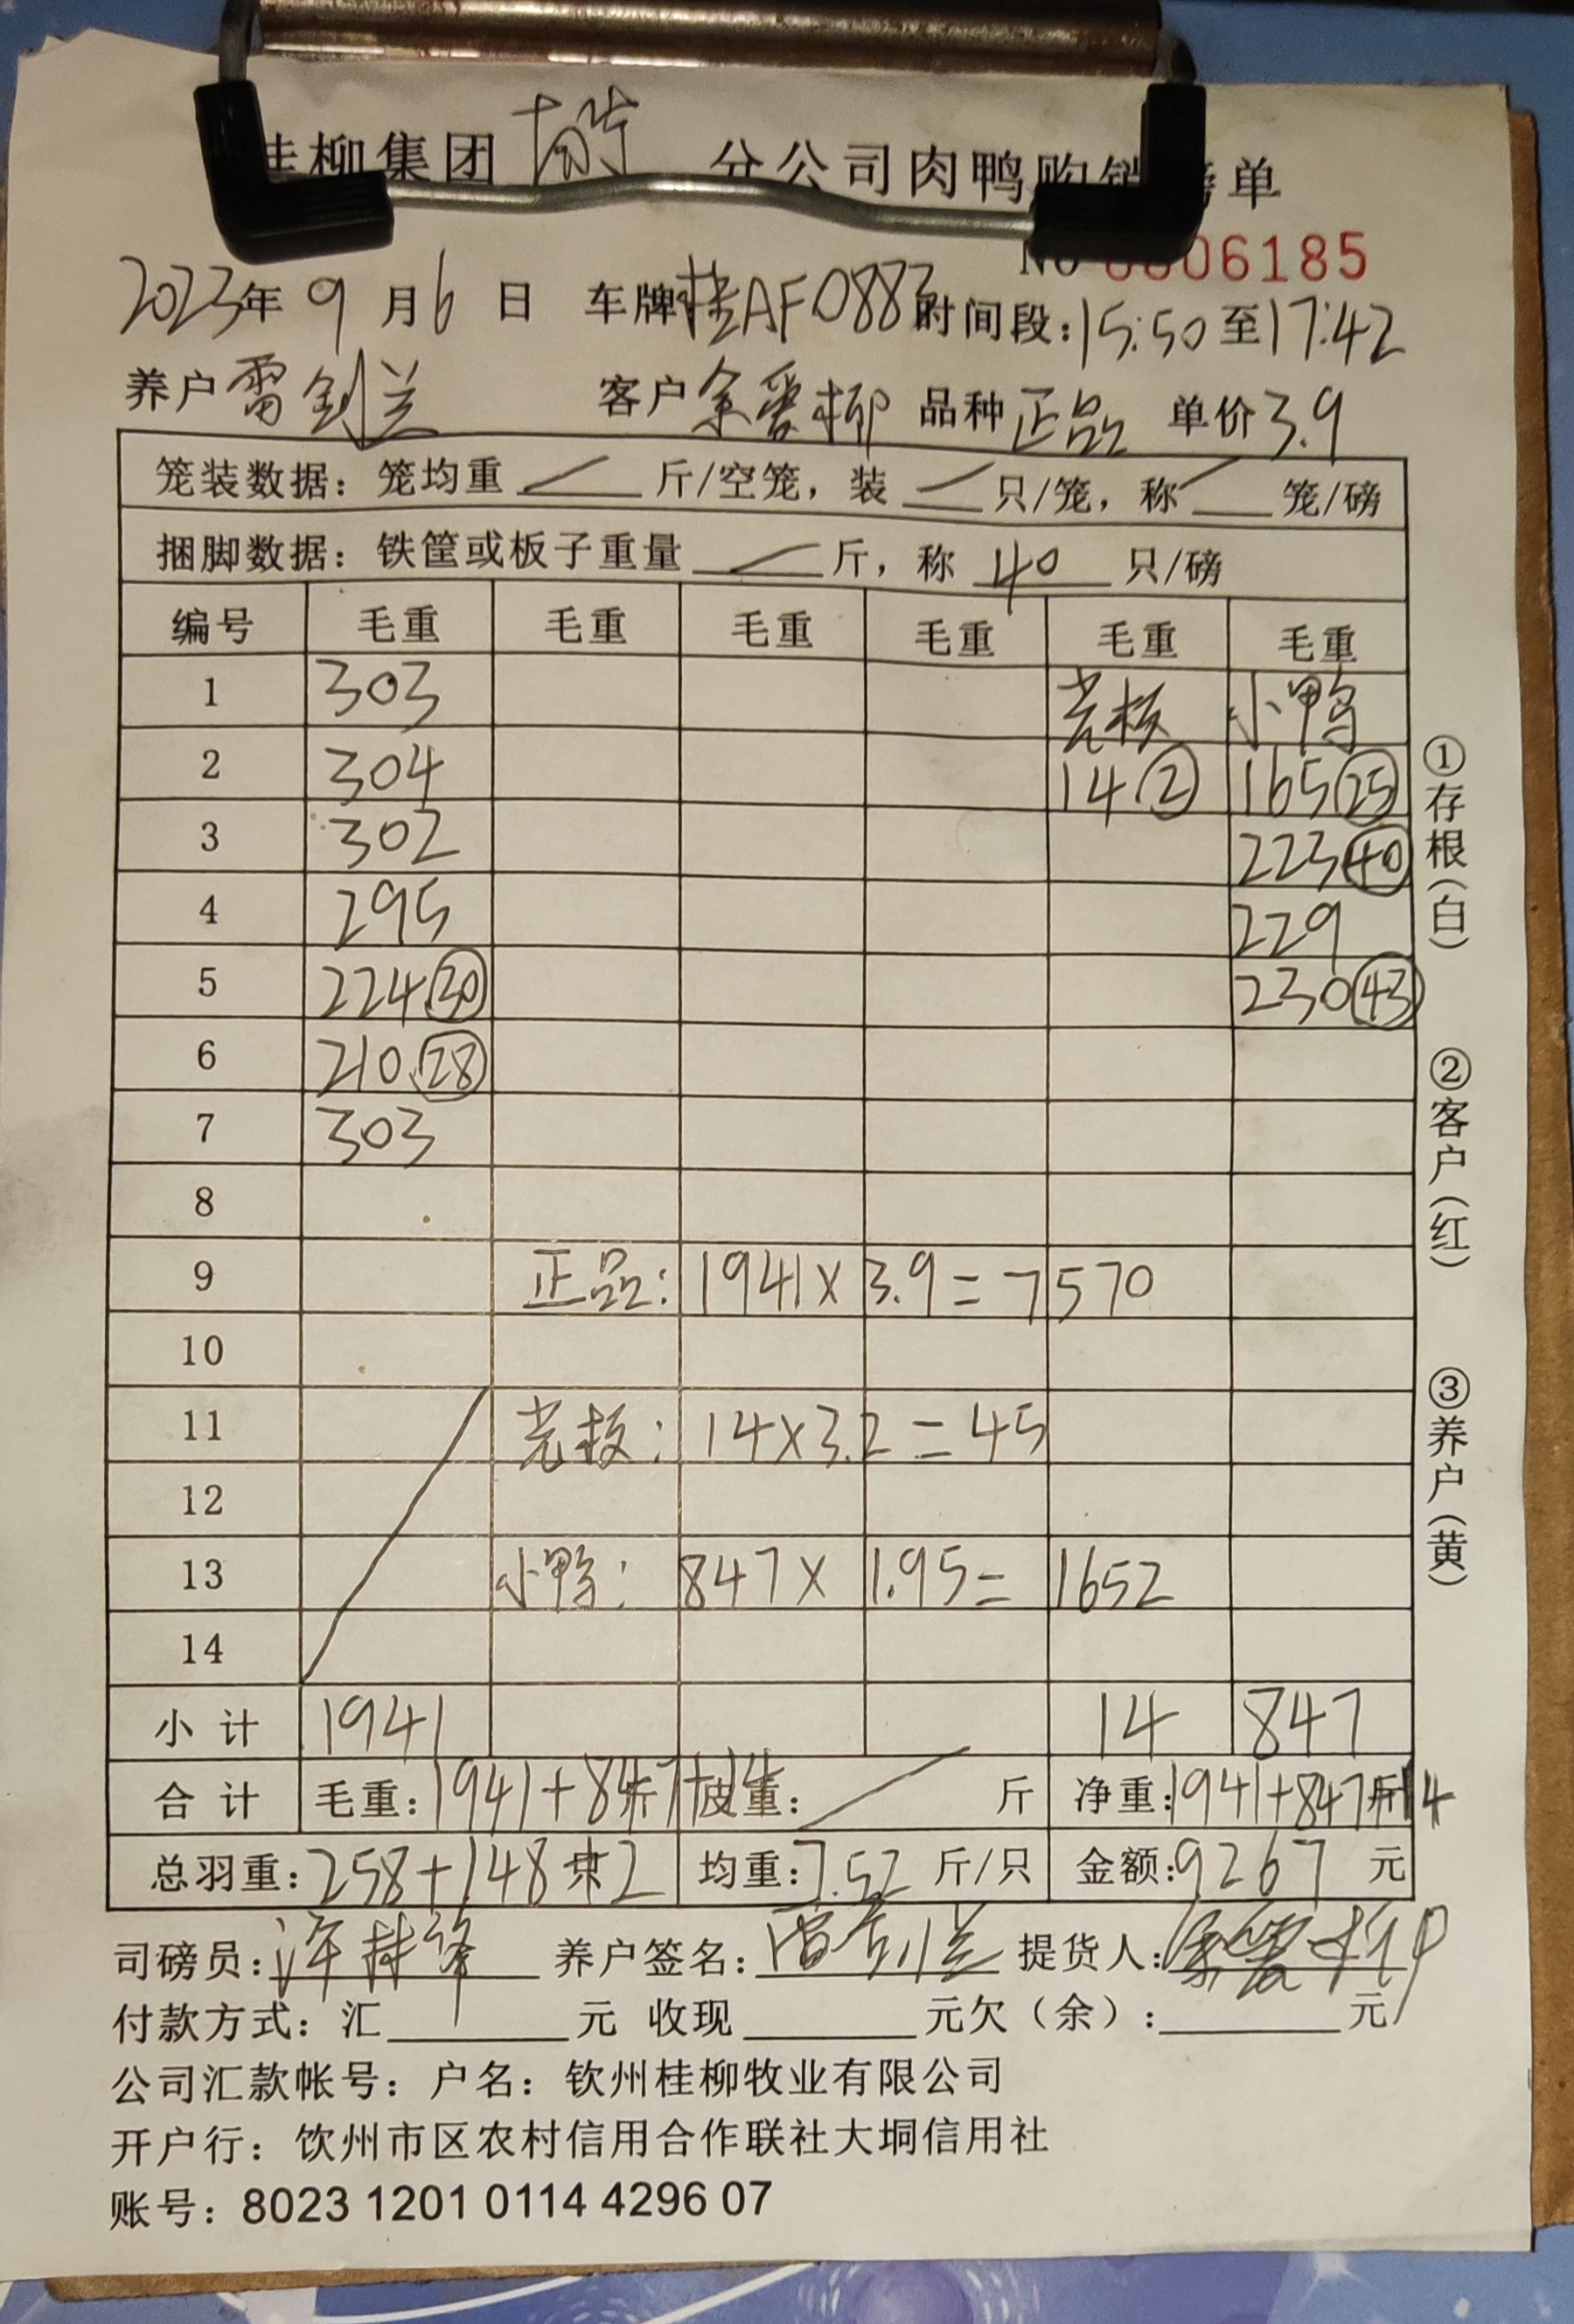 桂柳集团 分公司肉鸭购销磅单
No 0806185
2023年9月6日 车牌桂AF0883 时间段:15:50至17:42
养户雷剑兰 客户余爱柳 品种正品 单价3.9
笼装数据:笼均重 / 斤/空笼,装 / 只/笼,称 / 笼/磅
捆脚数据:铁筐或板子重量 / 斤,称 40 只/磅
编号 毛重 毛重 毛重 毛重 毛重 毛重
1 303 小鸭
2 304 14② 165㉕
3 302 223㊵
4 295 229
5 224㉚ 230㊸
6 210㉘
7 303
8
9 正品:1941×3.9=7570
10
11 14×3.2=45
12
13 小鸭:847×1.95=1652
14
小计 1941 14 847
合计 毛重:1941+847+14斤 皮重: / 斤 净重:1941+847+14斤
总羽重:258+148+2只 均重:7.52斤/只 金额:9267元
司磅员: 养户签名:雷剑兰 提货人:余爱柳
付款方式:汇 元 收现 元欠(余): 元
公司汇款帐号:户名:钦州桂柳牧业有限公司
开户行:饮州市区农村信用合作联社大垌信用社
账号:8023 1201 0114 4296 07
①存根(白)
②客户(红)
③养户(黄)